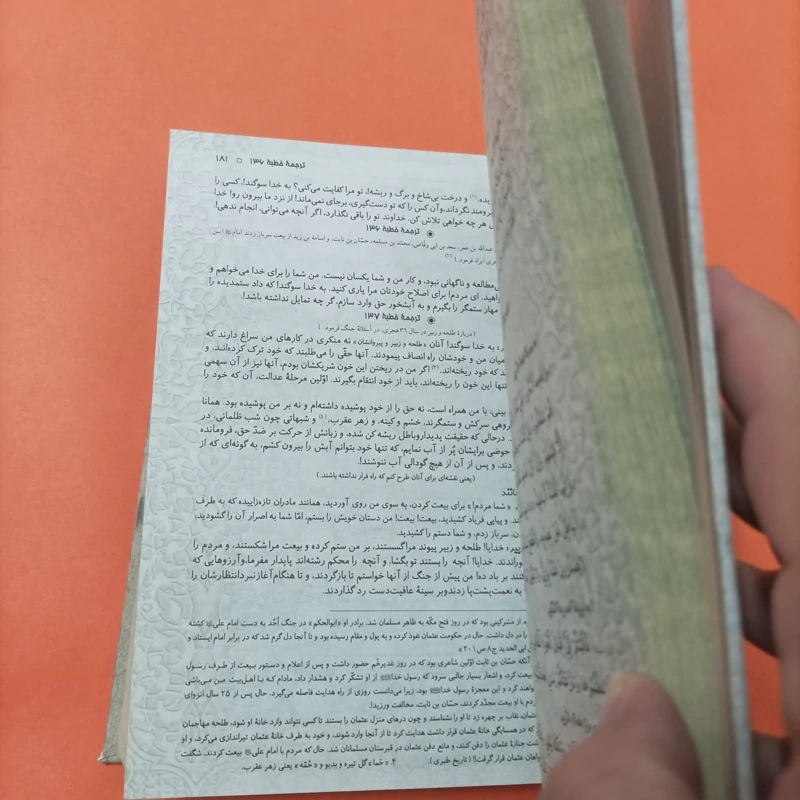 ترجمهٔ خطبهٔ ۱۳۶ □ ۱۸۱
و درخت بی‌شاخ و برگ و ریشه!، تو مرا کفایت می‌کنی؟ به خدا سوگند!، کسی را
نیرومند نگرداند، وآن کس را که تو دست‌گیری، برجای نمی‌ماند!، از نزد ما بیرون رو! خدا
هر چه خواهی تلاش کن، خداوند تو را باقی نگذارد، اگر آنچه می‌توانی، انجام ندهی!.
ترجمهٔ خطبهٔ ۱۳۶
عبدالله بن عمر، سعد بن ابی وقّاص، محمّد بن مسلمه، حسّان بن ثابت، و اسامة بن زید از بیعت سرباز زدند امام این
ایراد فرمود.) (۲)
مطالعه و ناگهانی نبود، و کار من و شما یکسان نیست. من شما را برای خدا می‌خواهم و
ای مردم! برای اصلاح خودتان مرا یاری کنید. به خدا سوگند! که داد ستمدیده را
مهار ستمگر را بگیرم و به آبشخور حق وارد سازم، گر چه تمایل نداشته باشد!.
ترجمهٔ خطبهٔ ۱۳۷
(دربارهٔ طلحه و زبیر در سال ۳۶ هجری، در آستانهٔ جنگ فرمود.)
به خدا سوگند! آنان «طلحه و زبیر و پیروانشان» نه منکری در کارهای من سراغ دارند که
میان من و خودشان راه انصاف پیمودند. آنها حقّی را می‌طلبند که خود ترک کرده‌انـد، و
که خود ریخته‌اند. (۳) اگر من در ریختن این خون شریکشان بودم، آنها نیز از آن سهمی
تنها این خون را ریخته‌اند، باید از خود انتقام بگیرند. اوّلین مرحلهٔ عدالت، آن که خود را
بینی، با من همراه است، نه حق را از خود پوشیده داشته‌ام و نه بر من پوشیده بود. همانا
گروهی سرکش و ستمگرند، خشم و کینه، و زهر عقرب، (۴) و شبهاتی چون شب ظلمانی، در
درحالی که حقیقت پدیدارو باطل ریشه کن شده، و زبانش از حرکت بر ضدّ حق، فرومانده
حوضی برایشان پُر از آب نمایم، که تنها خود بتوانم آبش را بیرون کشم، به گونه‌ای که از
و پس از آن از هیچ گودالی آب ننوشند!.
(یعنی نقشه‌ای برای آنان طرح کنم که راه فرار نداشته باشند.)
«شما مردم!» برای بیعت کردن، به سوی من روی آوردید، همانند مادران تازه‌زاییده که به طرف
و پیاپی فریاد کشیدید، بیعت! بیعت! من دستان خویش را بستم، امّا شما به اصرار آن را گشودید،
سرباز زدم، و شما دستم را کشیدید.
خدایا! طلحه و زبیر پیوند مرا گسستند، بر من ستم کرده و بیعت مرا شکستند، و مردم را
خدایا! آنچه را بستند تو بگشا، و آنچه را محکم رشته‌اند پایدار مفرما، و آرزوهایی که
بر باد ده! من پیش از جنگ از آنها خواستم تا بازگردند، و تا هنگام آغاز نبرد انتظارشان را
به نعمت پشت پا زدند و بر سینهٔ عافیت دست رد گذاردند.
از مشرکینی بود که در روز فتح مکّه به ظاهر مسلمان شد. برادر او «ابوالحکم» در جنگ اُحُد به دست امام علی کشته
را در دل داشت. حال در حکومت عثمان نفوذ کرده و به پول و مقام رسیده بود و تا آنجا دل گرم شد که در برابر امام ایستاد و
ابی الحدید ج۸ ص ۳۰۱».
حسّان بن ثابت اوّلین شاعری بود که در روز غدیرخُم حضور داشت و پس از اعلام و دستور بیعت از طرف رسول
بیعت کرد، و اشعار بسیار جالبی سرود که رسول خدا از او تشکّر کرد و هشدار داد، مادام که با اهل‌بیت من می‌باشی
کرد و این معجزهٔ رسول خدا بود، زیرا می‌دانست روزی از راه هدایت فاصله می‌گیرد. حال پس از ۲۵ سال انزوای
با او بیعت مجدّد کردند، حسّان بن ثابت، مخالفت ورزید!.
نقاب بر چهره زد تا او را نشناسند و چون درهای منزل عثمان را بستند تا کسی نتواند وارد خانهٔ او شود، طلحه مهاجمان
که در همسایگی خانهٔ عثمان قرار داشت هدایت کرد تا از آنجا وارد شوند، و خود به طرف خانهٔ عثمان تیراندازی می‌کرد، و او
جنازهٔ عثمان را دفن کنند، و مانع دفن عثمان در قبرستان مسلمانان شد. حال که مردم با امام علی بیعت کردند، شگفت
قرار گرفت!! (تاریخ طبری) ۴. «حَما» گل تیره و بدبو و «حُمّه» یعنی زهر عقرب.